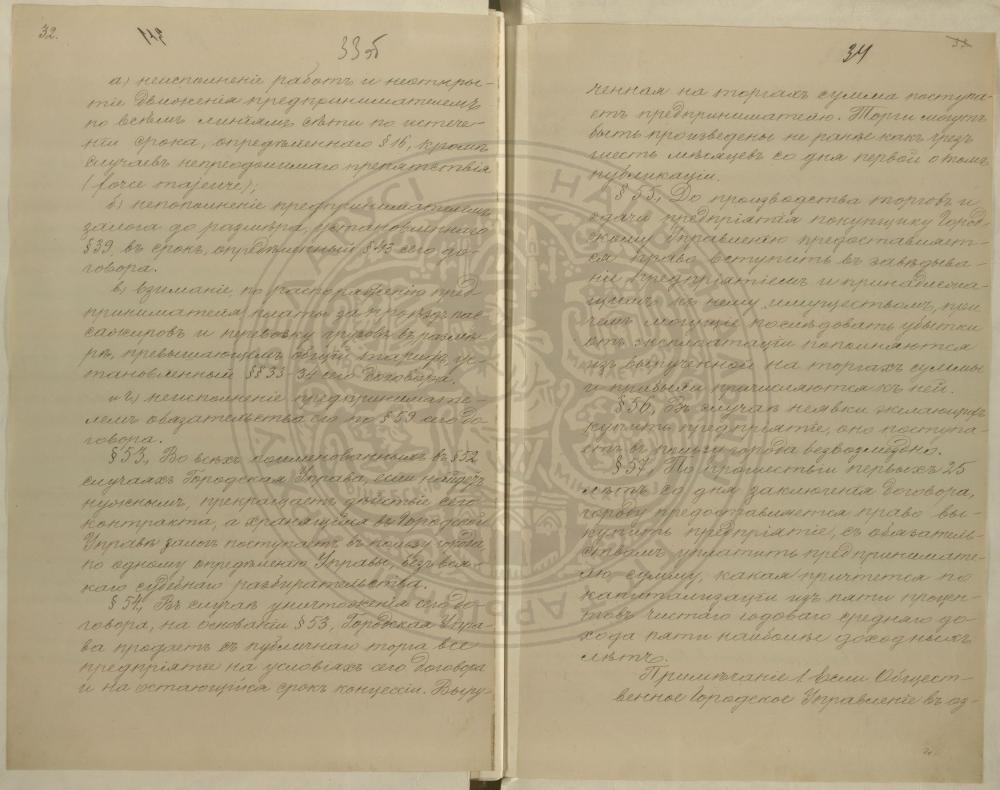 32.
33 об
а) неисполненіе работъ и неоткры-
тіе движенія предпринимателемъ
по всѣмъ линіямъ сѣти по истече-
ніи срока, опредѣленнаго § 16, кромѣ
случаевъ непреодолимаго препятствія
(force majeure);
б) непополненіе предпринимателемъ
залога до размѣра, установленнаго
§ 39, въ срокъ, опредѣленный § 43 сего до-
говора.
в) взиманіе, по распоряженію пред-
принимателя платы за проѣздъ пас-
сажировъ и провозку грузовъ въ размѣ-
рѣ, превышающемъ общій тарифъ, ус-
тановленный §§ 33-34 сего договора.
и г) неисполненіе предпринимате-
лемъ обязательства его по § 59 сего до-
говора.
§ 53, Во всѣхъ поименованныхъ въ § 52
случаяхъ Городская Управа, если найдетъ
нужнымъ, прекращаетъ дѣйствіе сего
контракта, а хранящійся въ Городской
Управѣ залогъ поступаетъ въ пользу города,
по одному опредѣленію Управы, безъ вся-
каго судебнаго разбирательства.
§ 54, Въ случаѣ уничтоженія сего до-
говора, на основаніи § 53, Городская Упра-
ва продаетъ съ публичнаго торга все
предпріятіе на условіяхъ сего договора
и на остающійся срокъ концессіи. Выру-
34
ченная на торгахъ сумма поступа-
етъ предпринимателю. Торги могутъ
быть произведены не ранѣе какъ чрезъ
шесть мѣсяцевъ со дня первой о томъ
публикаціи.
§ 55, До производства торговъ и
сдачи предпріятія покупщику Город-
скому Управленію предоставляет-
ся право вступить въ завѣдыва-
ніе предпріятіемъ и принадлежа-
щимъ къ нему имуществомъ, при
чемъ могущіе послѣдовать убытки
отъ эксплоатаціи пополняются
изъ вырученной на торгахъ суммы
и прибыли причисляются къ ней.
§ 56, Въ случаѣ неявки желающихъ
купить предпріятіе, оно поступа-
етъ въ пользу города безвозмездно.
§ 57, По прошествіи первыхъ 25
лѣтъ со дня заключенія договора,
городу предоставляется право вы-
купить предпріятіе, съ обязатель-
ствомъ уплатить предпринимате-
лю сумму, какая причтется по
капитализаціи изъ пяти процен-
товъ чистаго годоваго средняго до-
хода пяти наиболѣе доходныхъ
лѣтъ.
Примѣчаніе 1. Если Общест-
венное Городское Управленіе въ оз-